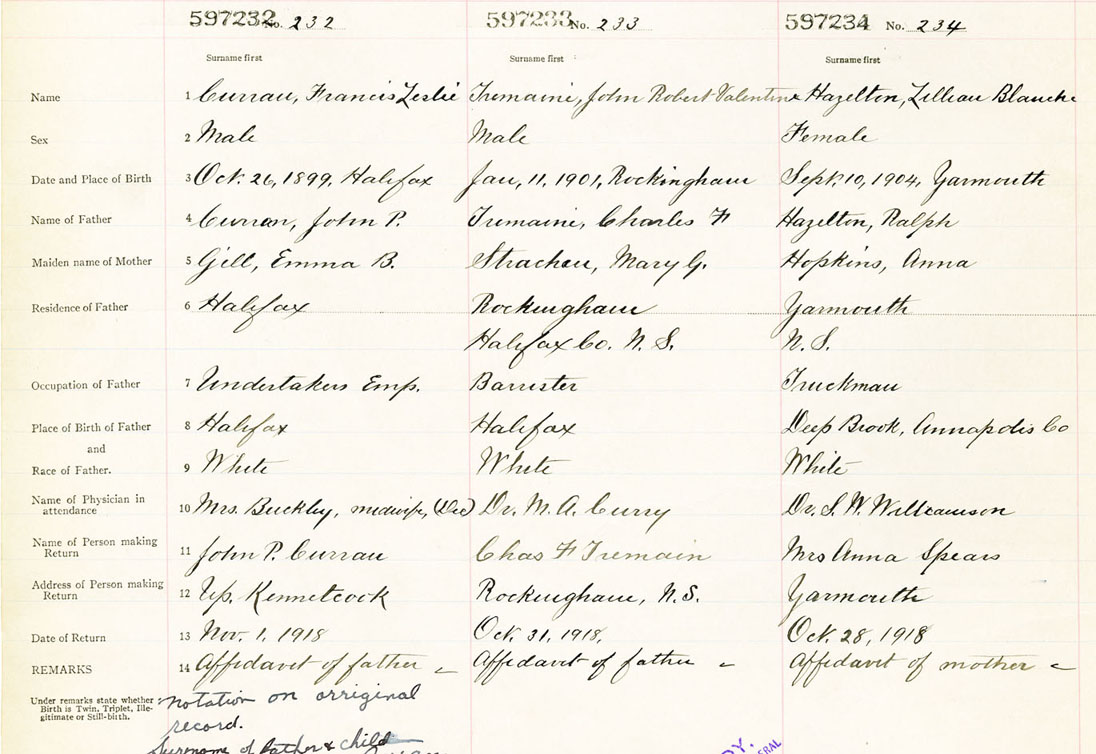 597232 No. 232 597233 No. 233 597234 No. 234
Surname first Surname first Surname first
Name 1 Curran, Francis Leslie Tremaine, John Robert Valentine Hazelton, Lillian Blanche
Sex 2 Male Male Female
Date and Place of Birth 3 Oct. 26, 1899, Halifax Jan, 11, 1901, Rockingham Sept. 10, 1904, Yarmouth
Name of Father 4 Curran, John P. Tremaine, Charles F Hazelton, Ralph
Maiden name of Mother 5 Gill, Emma B. Strachan, Mary G. Hopkins, Anna
Residence of Father 6 Halifax Rockingham Yarmouth
Halifax Co. N. S. N. S.
Occupation of Father 7 Undertakers Emp. Barrister Truckman
Place of Birth of Father 8 Halifax Halifax Deep Brook, Annapolis Co
and
Race of Father. 9 White White White
Name of Physician in
attendance 10 Mrs. Buckley, midwife, (Dec) Dr. M. A. Curry Dr. S. W. Williamson
Name of Person making
Return 11 John P. Curran Chas F Tremain Mrs Anna Spears
Address of Person making
Return 12 Up. Kennetcook Rockingham, N.S. Yarmouth
Date of Return 13 Nov. 1, 1918 Oct. 31, 1918. Oct. 28, 1918
REMARKS 14 Affidavit of father Affidavit of father Affidavit of mother
Under remarks state whether
Birth is Twin, Triplet, Ille-
gitimate or Still-birth.
notation on orriginal
record.
Surname of father & child